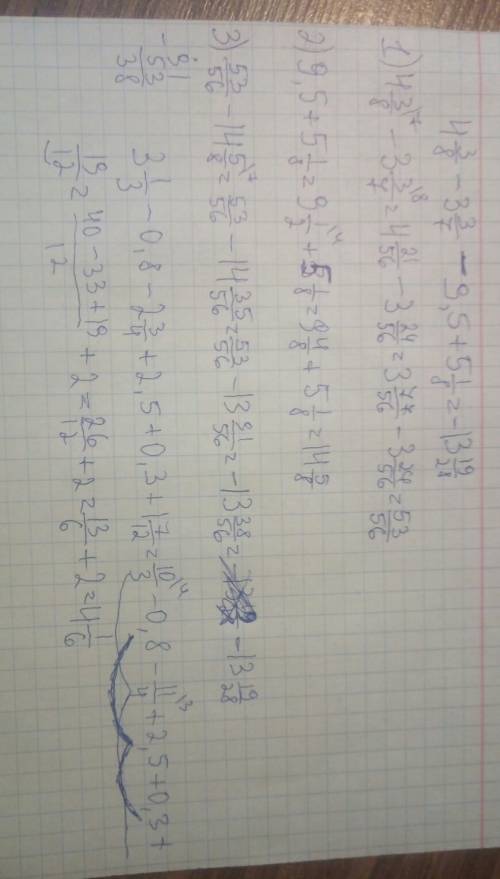 4 3/8 - 3 3/7 - 9,5 + 5 1/8 = -13 19/28
1) 4 3/8 - 3 3/7 = 4 21/56 - 3 24/56 = 3 77/56 - 3 24/56 = 53/56
2) 9,5 + 5 1/8 = 9 1/2 + 5 1/8 = 9 4/8 + 5 1/8 = 14 5/8
3) 53/56 - 14 5/8 = 53/56 - 14 35/56 = 53/56 - 13 91/56 = -13 38/56 = -13 19/28
- 91
53
38
3 1/3 - 0,8 - 2 3/4 + 2,5 + 0,3 + 1 7/12 = 10/3 - 0,8 - 11/4 + 2,5 + 0,3 +
19/12 = (40 - 33 + 19)/12 + 2 = 26/12 + 2 = 13/6 + 2 = 4 1/6